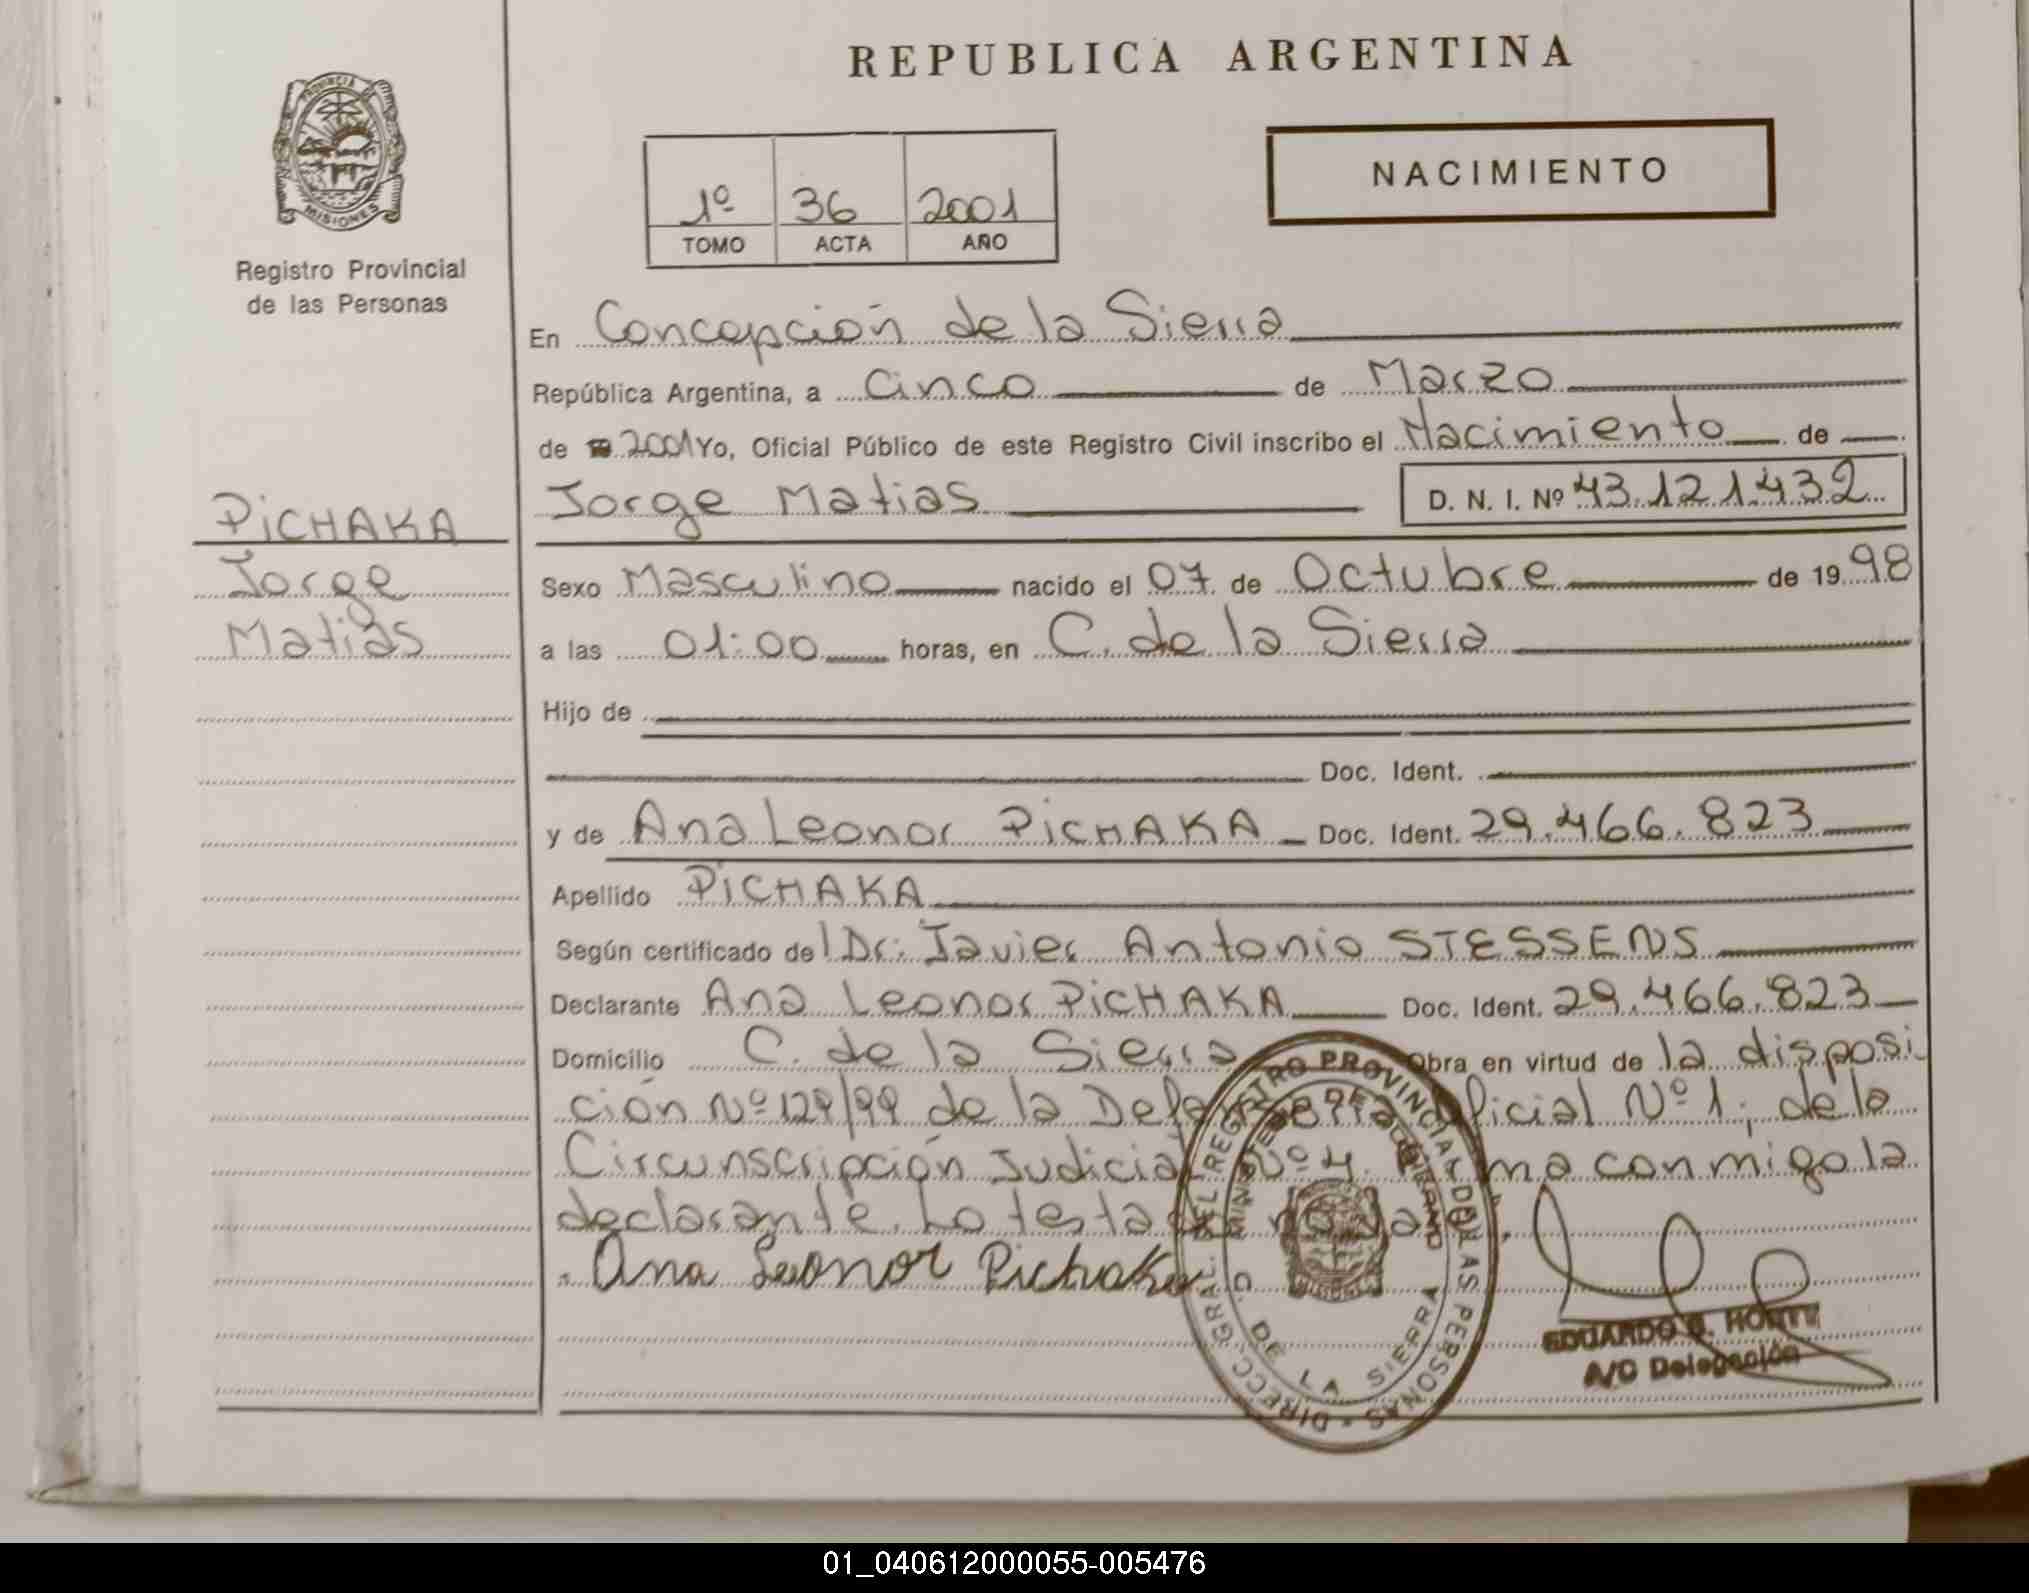 REPUBLICA ARGENTINA
PROVINCIA DE MISIONES
Registro Provincial
de las Personas
1º 36 2001
TOMO ACTA AÑO
NACIMIENTO
En Concepción de la Sierra
República Argentina, a Cinco de Marzo
de 2001 Yo, Oficial Público de este Registro Civil inscribo el Nacimiento de
Jorge Matias D. N. I. Nº 43.121.432
PiCHAKA
Jorge
Matias
Sexo Masculino nacido el 07 de Octubre de 1998
a las 01:00 horas, en C. de la Sierra
Hijo de
Doc. Ident.
y de Ana Leonor PiCHAKA Doc. Ident. 29.466.823
Apellido PiCHAKA
Según certificado del Dr. Javier Antonio STESSENS
Declarante Ana Leonor PiCHAKA Doc. Ident. 29.466.823
Domicilio C. de la Sierra Obra en virtud de la disposi
ción Nº 129/99 de la Defensoria Oficial Nº 1, de la
Circunscripción Judicial Nº 4. Firma conmigo la
declarante. Lo testado no vale.
Ana Leonor Pichaka
DIRECC. GRAL. DEL REGISTRO PROVINCIAL DE LAS PERSONAS
MINISTERIO DE GOBIERNO
C. DE LA SIERRA
EDUARDO
A/C Delegación
01_040612000055-005476